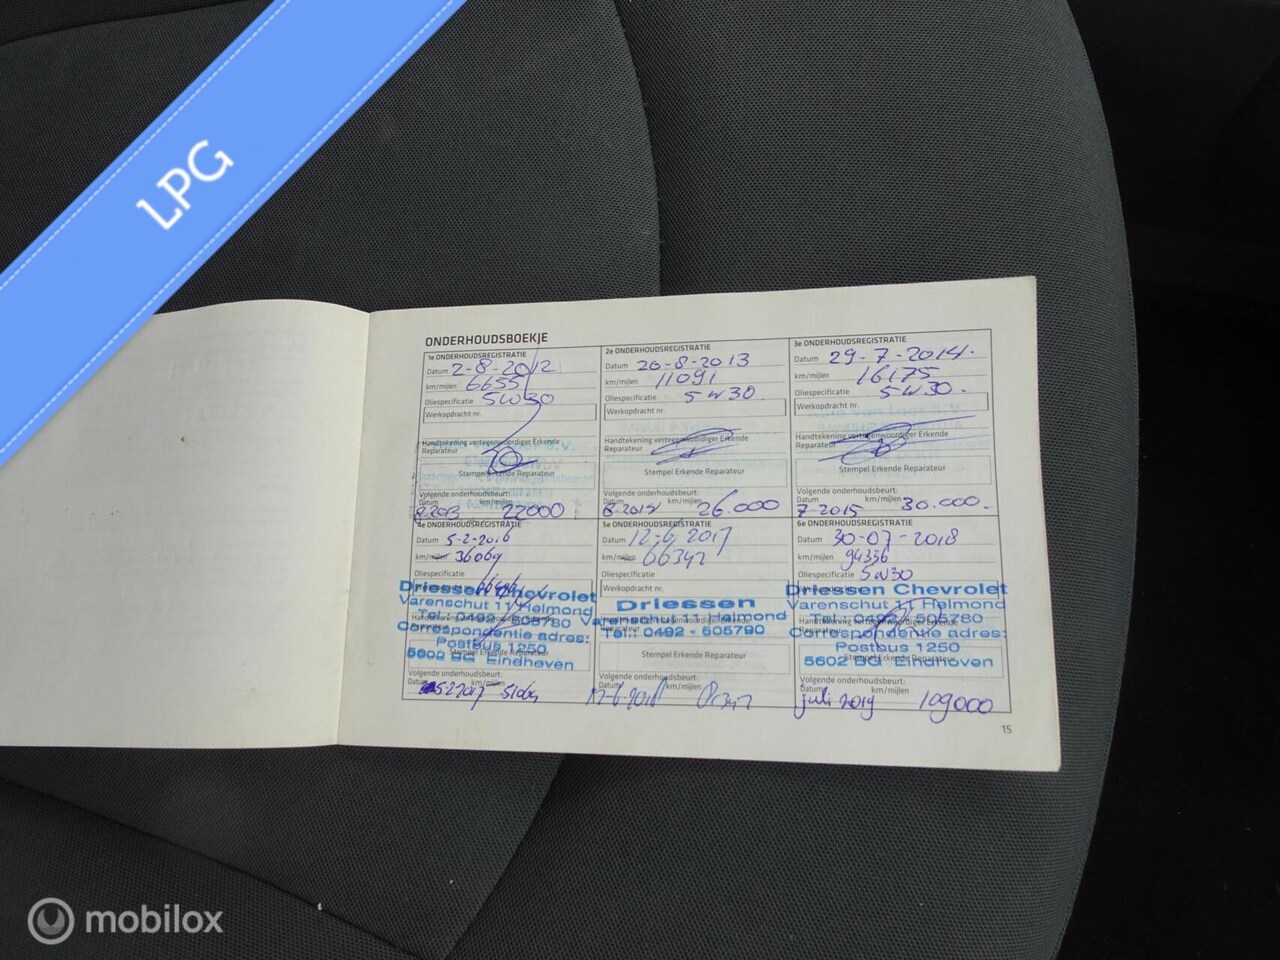 LPG
ONDERHOUDSBOEKJE
1e ONDERHOUDSREGISTRATIE
Datum 2-8-2012
km/mijlen 6655
Oliespecificatie 5W30
Werkopdracht nr.
Handtekening vertegenwoordiger Erkende
Reparateur
Stempel Erkende Reparateur
Volgende onderhoudsbeurt:
Datum km/mijlen
8-2013 22000
2e ONDERHOUDSREGISTRATIE
Datum 20-8-2013
km/mijlen 11091
Oliespecificatie 5W30.
Werkopdracht nr.
Handtekening vertegenwoordiger Erkende
Reparateur
Stempel Erkende Reparateur
Volgende onderhoudsbeurt:
Datum km/mijlen
8-2014 26.000
3e ONDERHOUDSREGISTRATIE
Datum 29-7-2014.
km/mijlen 16175
Oliespecificatie 5W30.
Werkopdracht nr.
Handtekening vertegenwoordiger Erkende
Reparateur
Stempel Erkende Reparateur
Volgende onderhoudsbeurt:
Datum km/mijlen
7-2015 30.000.
4e ONDERHOUDSREGISTRATIE
Datum 5-2-2016
km/mijlen 36069
Oliespecificatie
Driessen Chevrolet
Varenschut 11 Helmond
Tel.: 0492 - 505780
Correspondentie adres:
Postbus 1250
Stempel Erkende Reparateur
5602 BG Eindhoven
Volgende onderhoudsbeurt:
Datum km/mijlen
5e ONDERHOUDSREGISTRATIE
Datum 12-6-2017
km/mijlen 66342
Oliespecificatie
Werkopdracht nr.
Driessen
Varenschut Helmond
Tel.: 0492 - 505790
Stempel Erkende Reparateur
Volgende onderhoudsbeurt:
Datum km/mijlen
12-6-2018
6e ONDERHOUDSREGISTRATIE
Datum 30-07-2018
km/mijlen 94336
Oliespecificatie 5W30
Driessen Chevrolet
Varenschut 11 Helmond
Tel.: 0492 - 505780
Correspondentie adres:
Postbus 1250
Stempel Erkende Reparateur
5602 BG Eindhoven
Volgende onderhoudsbeurt:
Datum km/mijlen
juli 2019 109000
15
mobilox